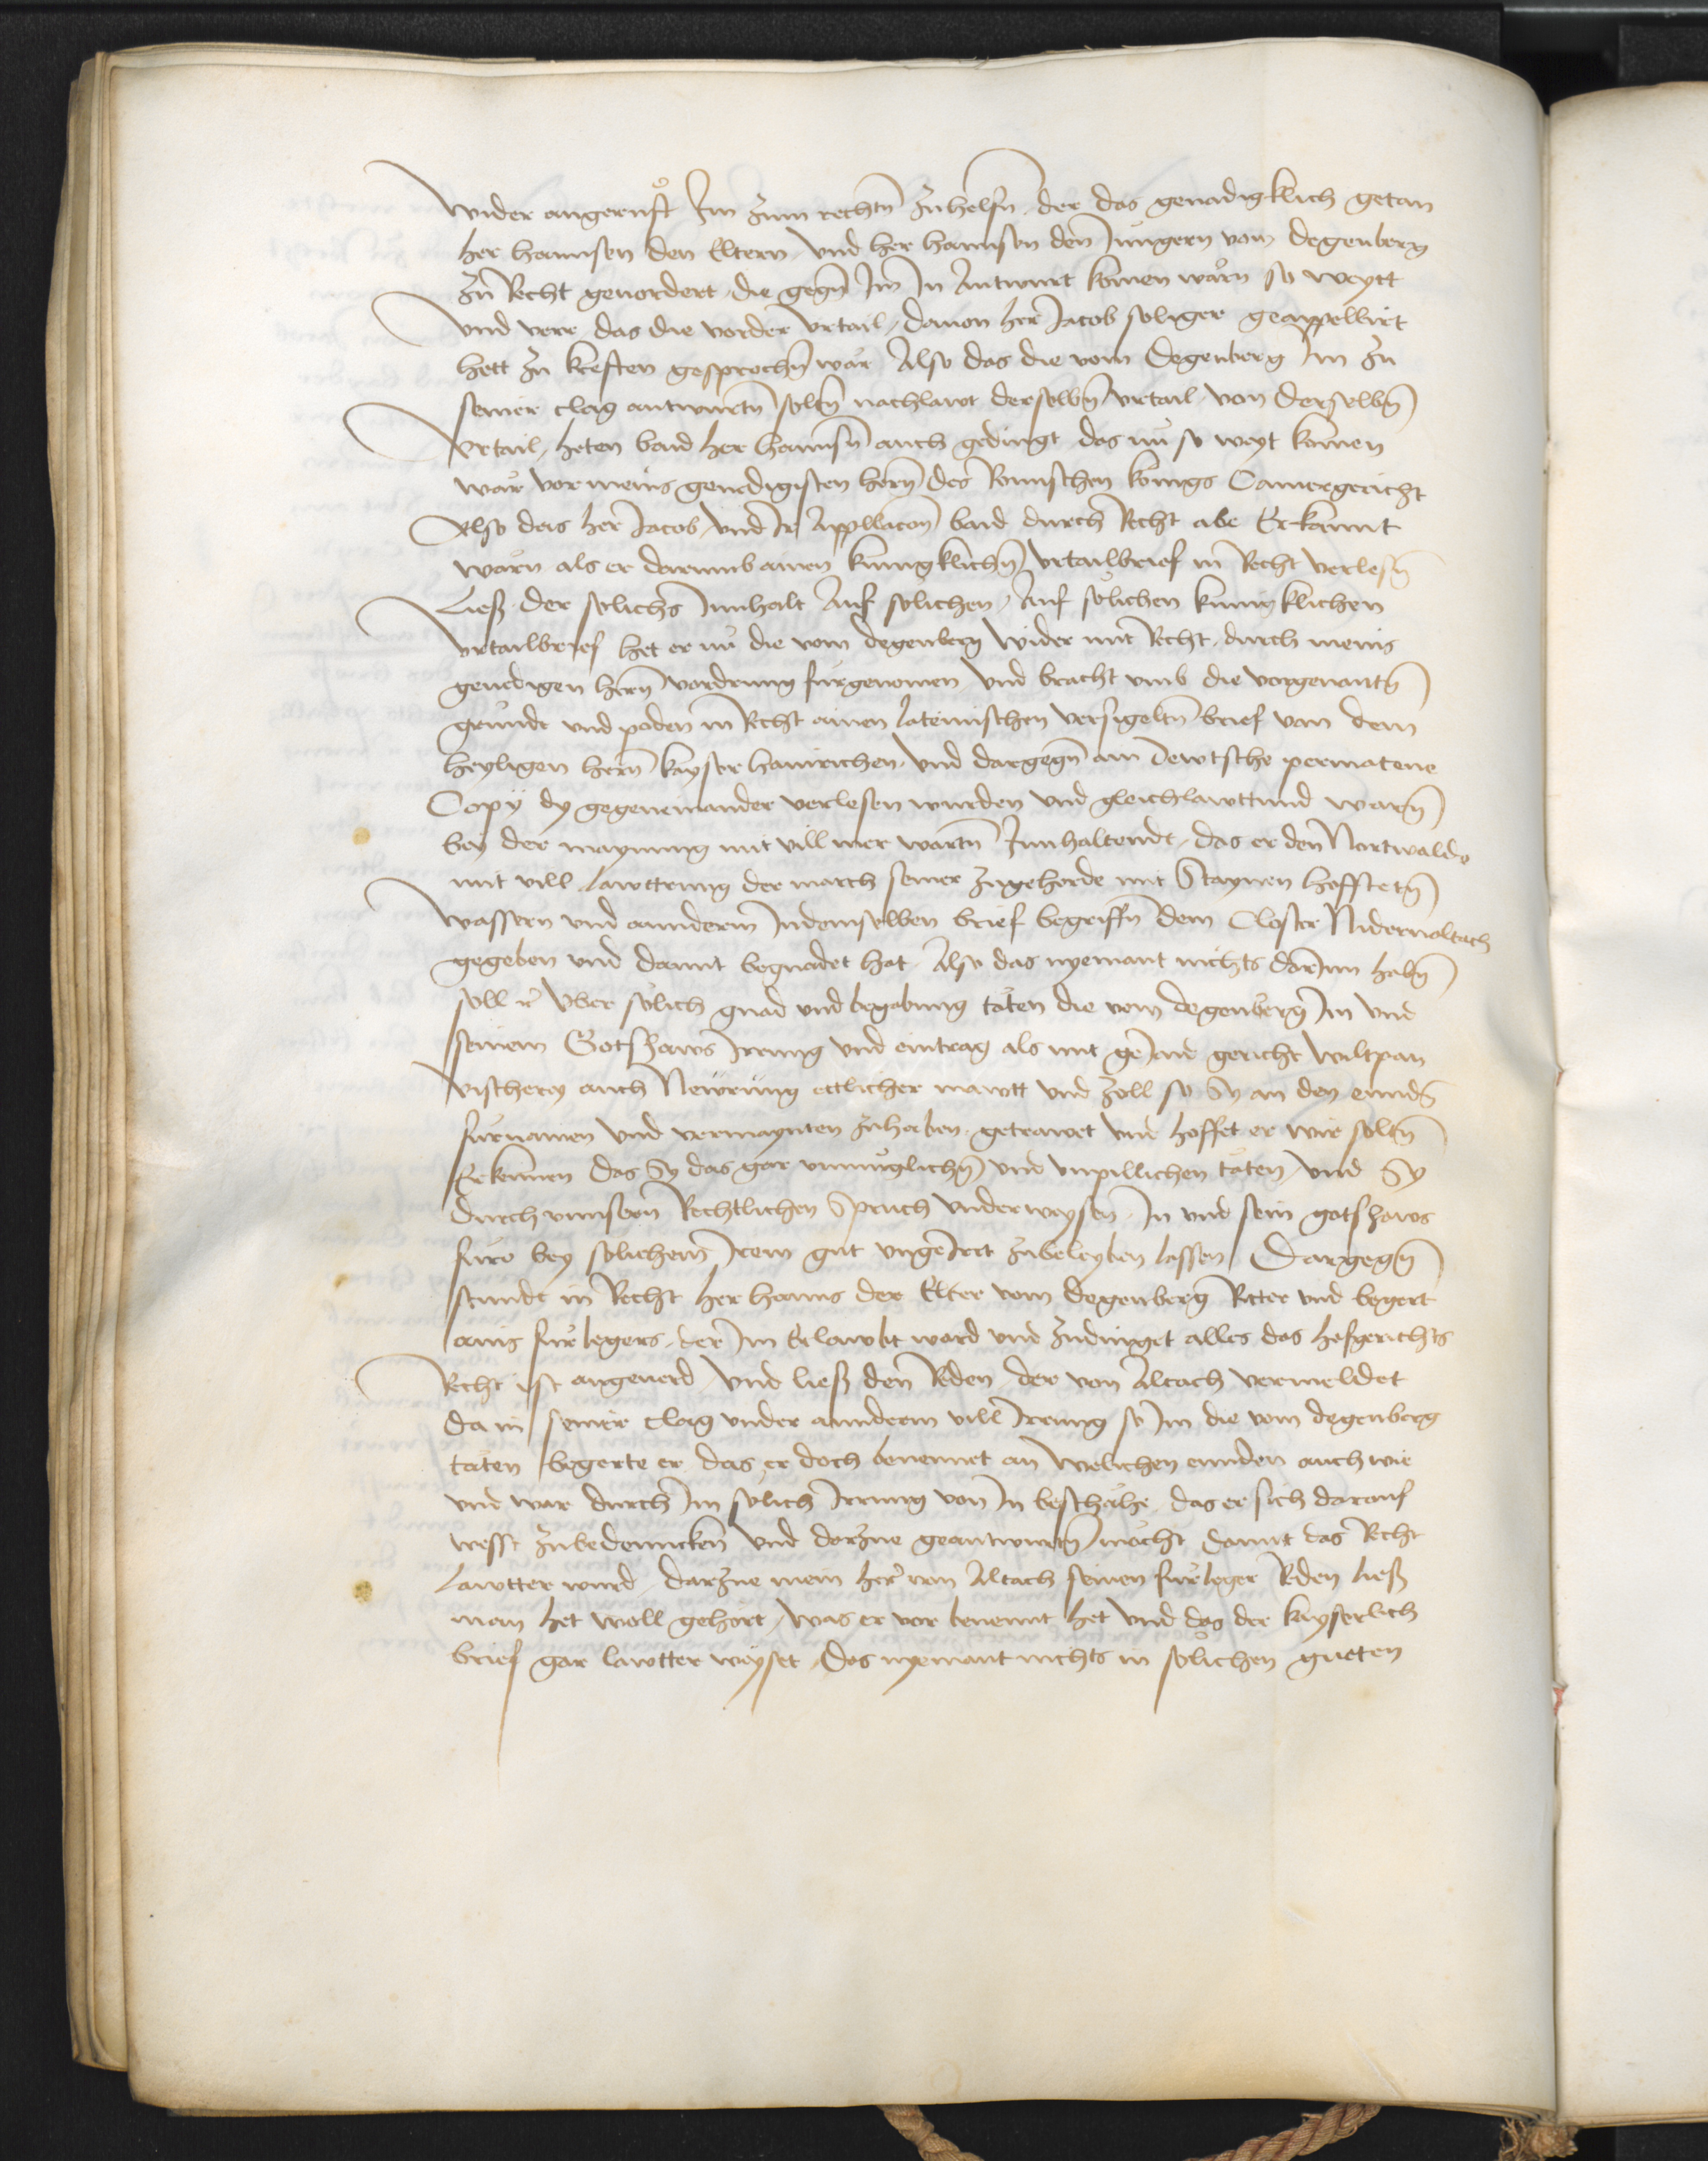 Wider angeruͦft Im zum rechtn̄ zuhelfn̄. der das genadigklich getan
her hannsen den Eltern. Vnd her hannsen den Jungern von degenberg
zu Recht geuordert, die gegn̄ Im In Antwurt komen wärn so weytt
Vnd verr das die vorder Vrtail, dauon her Jacob seliger geappellirt
hett zu kreften gesprochn̄ wär Also das die vom Degenberg Im zu
seiner clag antwurtn̄ soltn̄ nachlawt derselbn̄ Vrtail von derselbn̄
Vrtail, heten baid her hannsn̄ auch gedingt das nu so weyt komen
wär vor meins genedigisten hern̄ des Romischen konigs Camergericht
Also das her Jacob vnd Ir Appllacon̄ baid durch Recht abe Erkannt
wärn als er darumb ainen kunigklichn̄ vrtailbrief in Recht verlesn̄
Ließ der solichs Innhalt Auf solichen, Auf solichen kunigklichen
vrtailbrief het er nu die vom degenberg wider mit Recht durch meins
genedigen hern̄ vordrung furgenomen vnd bracht vmb die vorgenantn̄
grundt vnd poden in Recht ainen lateinischen versigeltn̄ brief von dem
heyligen hern̄ kayser hainrichen. Vnd dargegn̄ ain Dewtsche permatene
Copÿ dy gegeneinander verlesen wurden vnd gleichlawttund warn̄
bey der maynung mit vill mer wartn̄ Innhaltendt. das er den Nortwalde
mit vill lawttrung der march seiner zugehorde mit Staynen hoffstetn̄
Wassern vnd annderm Indemselben brief begriffn̄ dem Closter Nidernaltach
gegeben vnd damit begnadet hat. Also das nyemant nichts darInn habn̄
soll rc̄ Vber solich gnad vnd begabung täten die vom degenberg Im vnd
seinem Gotshaws Irrung vnd eintrag als mit gericht wiltpan
Vischerey auch Newrung ettlicher mawtt vnd Zoll so Sy an den ennds
furnamen vnd vermaynten zuhaben. getrawet vnd hoffet er wir soltn̄
Erkennen das Sy das gar vnmuglichn̄ vnd vnpillichen täten vnd Sy
durch vnnsern Rechtlichen Spruch vnderweysen. In vnd sein gotshaws
furo bey solichem Irem gut vngeIrrt zubeleyben lassen Dargegn̄
stundt in Recht her hanns der Elter vom degenberg Ritter vnd begert
ains furlegers. der Im Erlawbt ward vnd zudinget alles das hofgerichts
Recht ist angeuerd Vnd ließ den Reden der von Altach vermeldet
da in seiner clag vnder annderm vill Irrung so Im die vom degenberg
täten begerte er das er doch benennet an welichen ennden auch wie
vnd war durch Im solich Irrung von In beschähe das er sich darauf
wesst zubedenncken vnd darzue geantwurtn̄ mocht damit das Recht
lawtter wurd, darzue mein her von Altach seinen furleger Reden ließ
man het woll gehört, was er vor benennt het vnd das der kayserlich
brief gar lawtter weyset, das nyemant nichts in solichen gueten